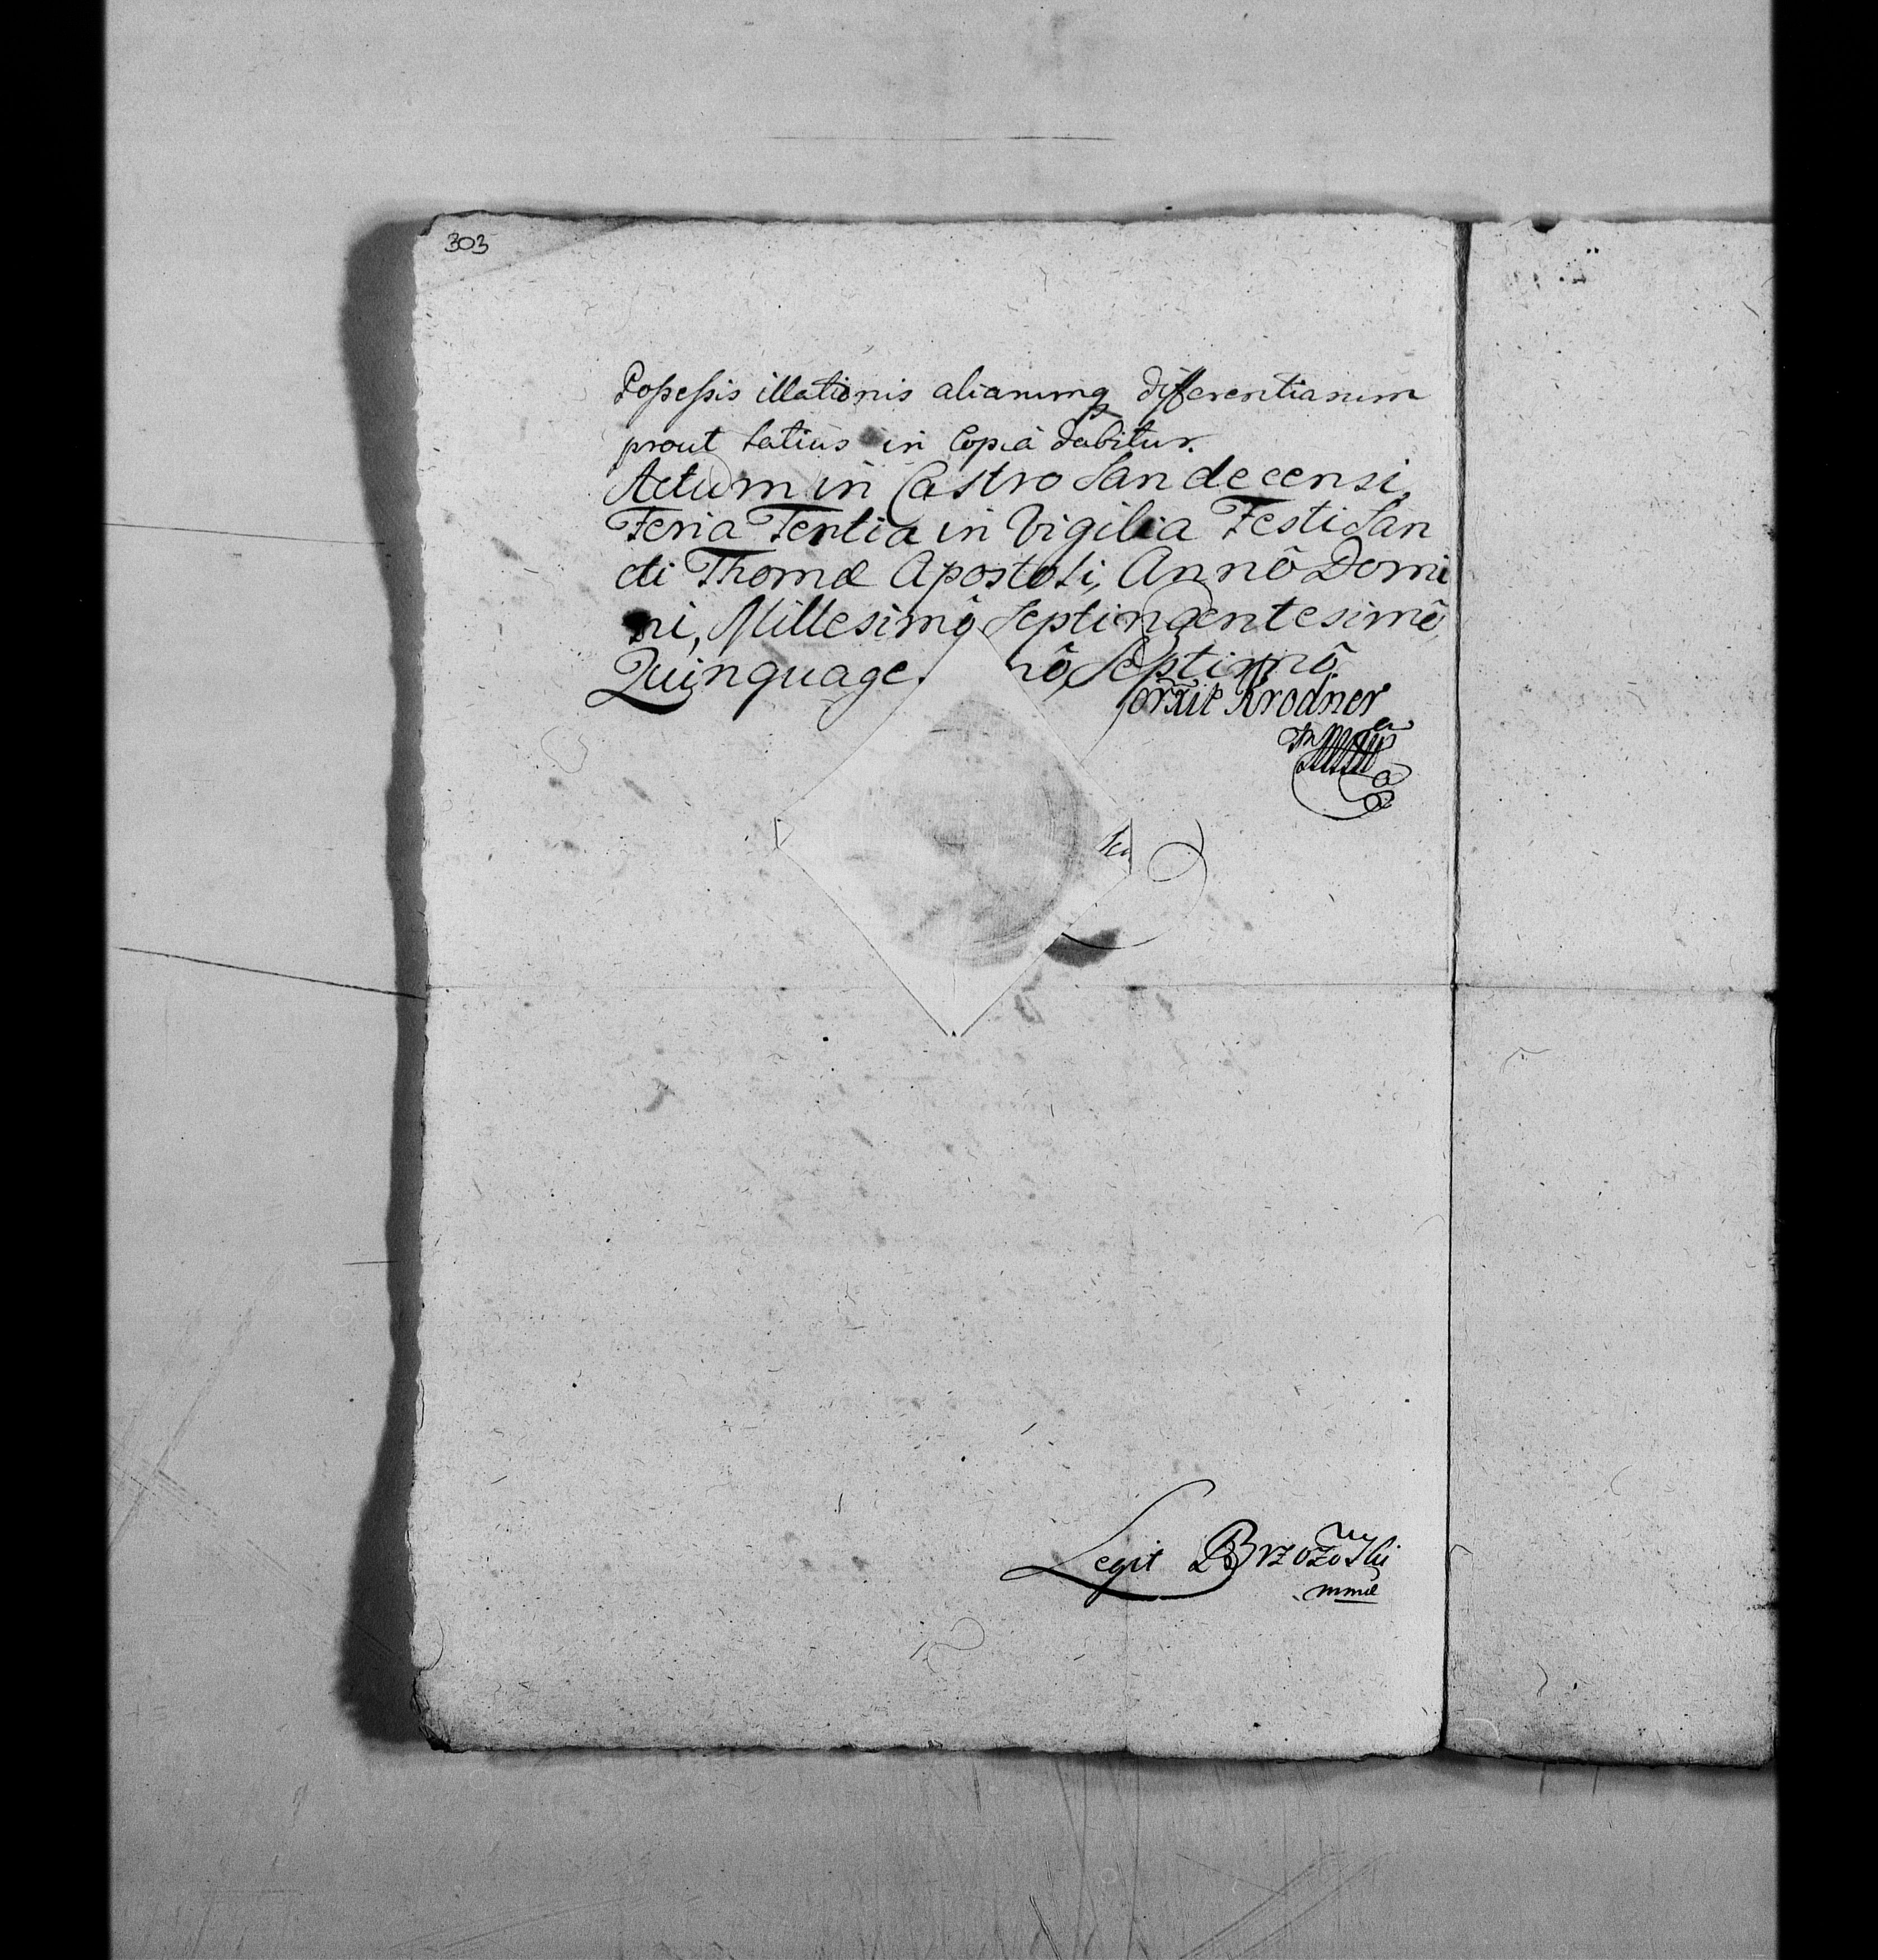 303
Possessis illationis aliarumq differentiarum
prout latius in Copia dabitur.
Actum in Castro Sandecensi,
Feria Tertia in Vigilia Festi San
cti Thomæ Apostoli, Annô Domi
ni, Millesimô Septingentesimô,
Quinquage nô, Septimô
Corrxit Krodner
Legit Brzozowski
mmæ